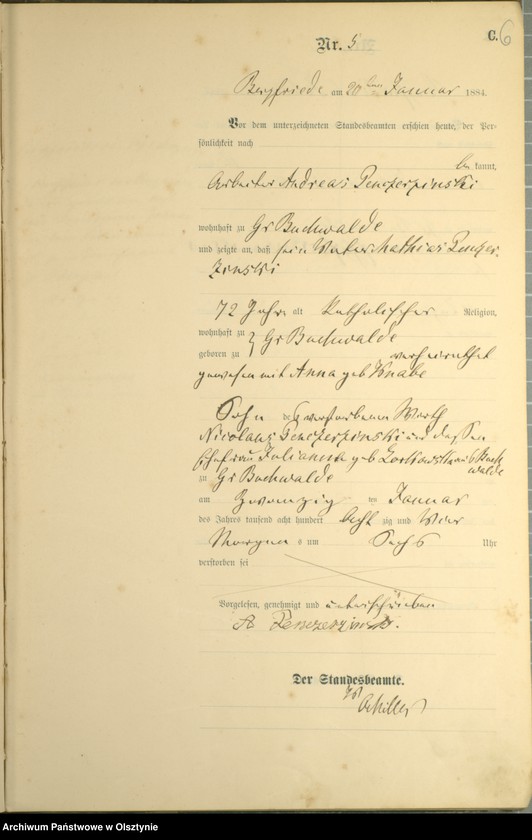 C. 6
Nr. 5
Bergfriede am 20ten Januar 1884.
Vor dem unterzeichneten Standesbeamten erschien heute, der Per-
sönlichkeit nach
be kannt,
Arbeiter Andreas Penczerzinski
wohnhaft zu Gr Buchwalde
und zeigte an, daß sein Vater Mathias Penczer-
zinski
72 Jahre alt Katholischer Religion,
wohnhaft zu } Gr Buchwalde
geboren zu verheirathet
gewesen mit Anna geb Knabe
Sohn des verstorbenen Wirth
Nicolaus Penczerzinski und dessen
Ehefrau Julianna geb
zu Gr Buchwalde
am Zwanzig ten Januar
des Jahres tausend acht hundert Acht zig und Vier
Morgen s um Sechs Uhr
verstorben sei
Vorgelesen, genehmigt und unterschrieben
A Penczerzinski.
Der Standesbeamte.
Achilles
Archiwum Państwowe w Olsztynie